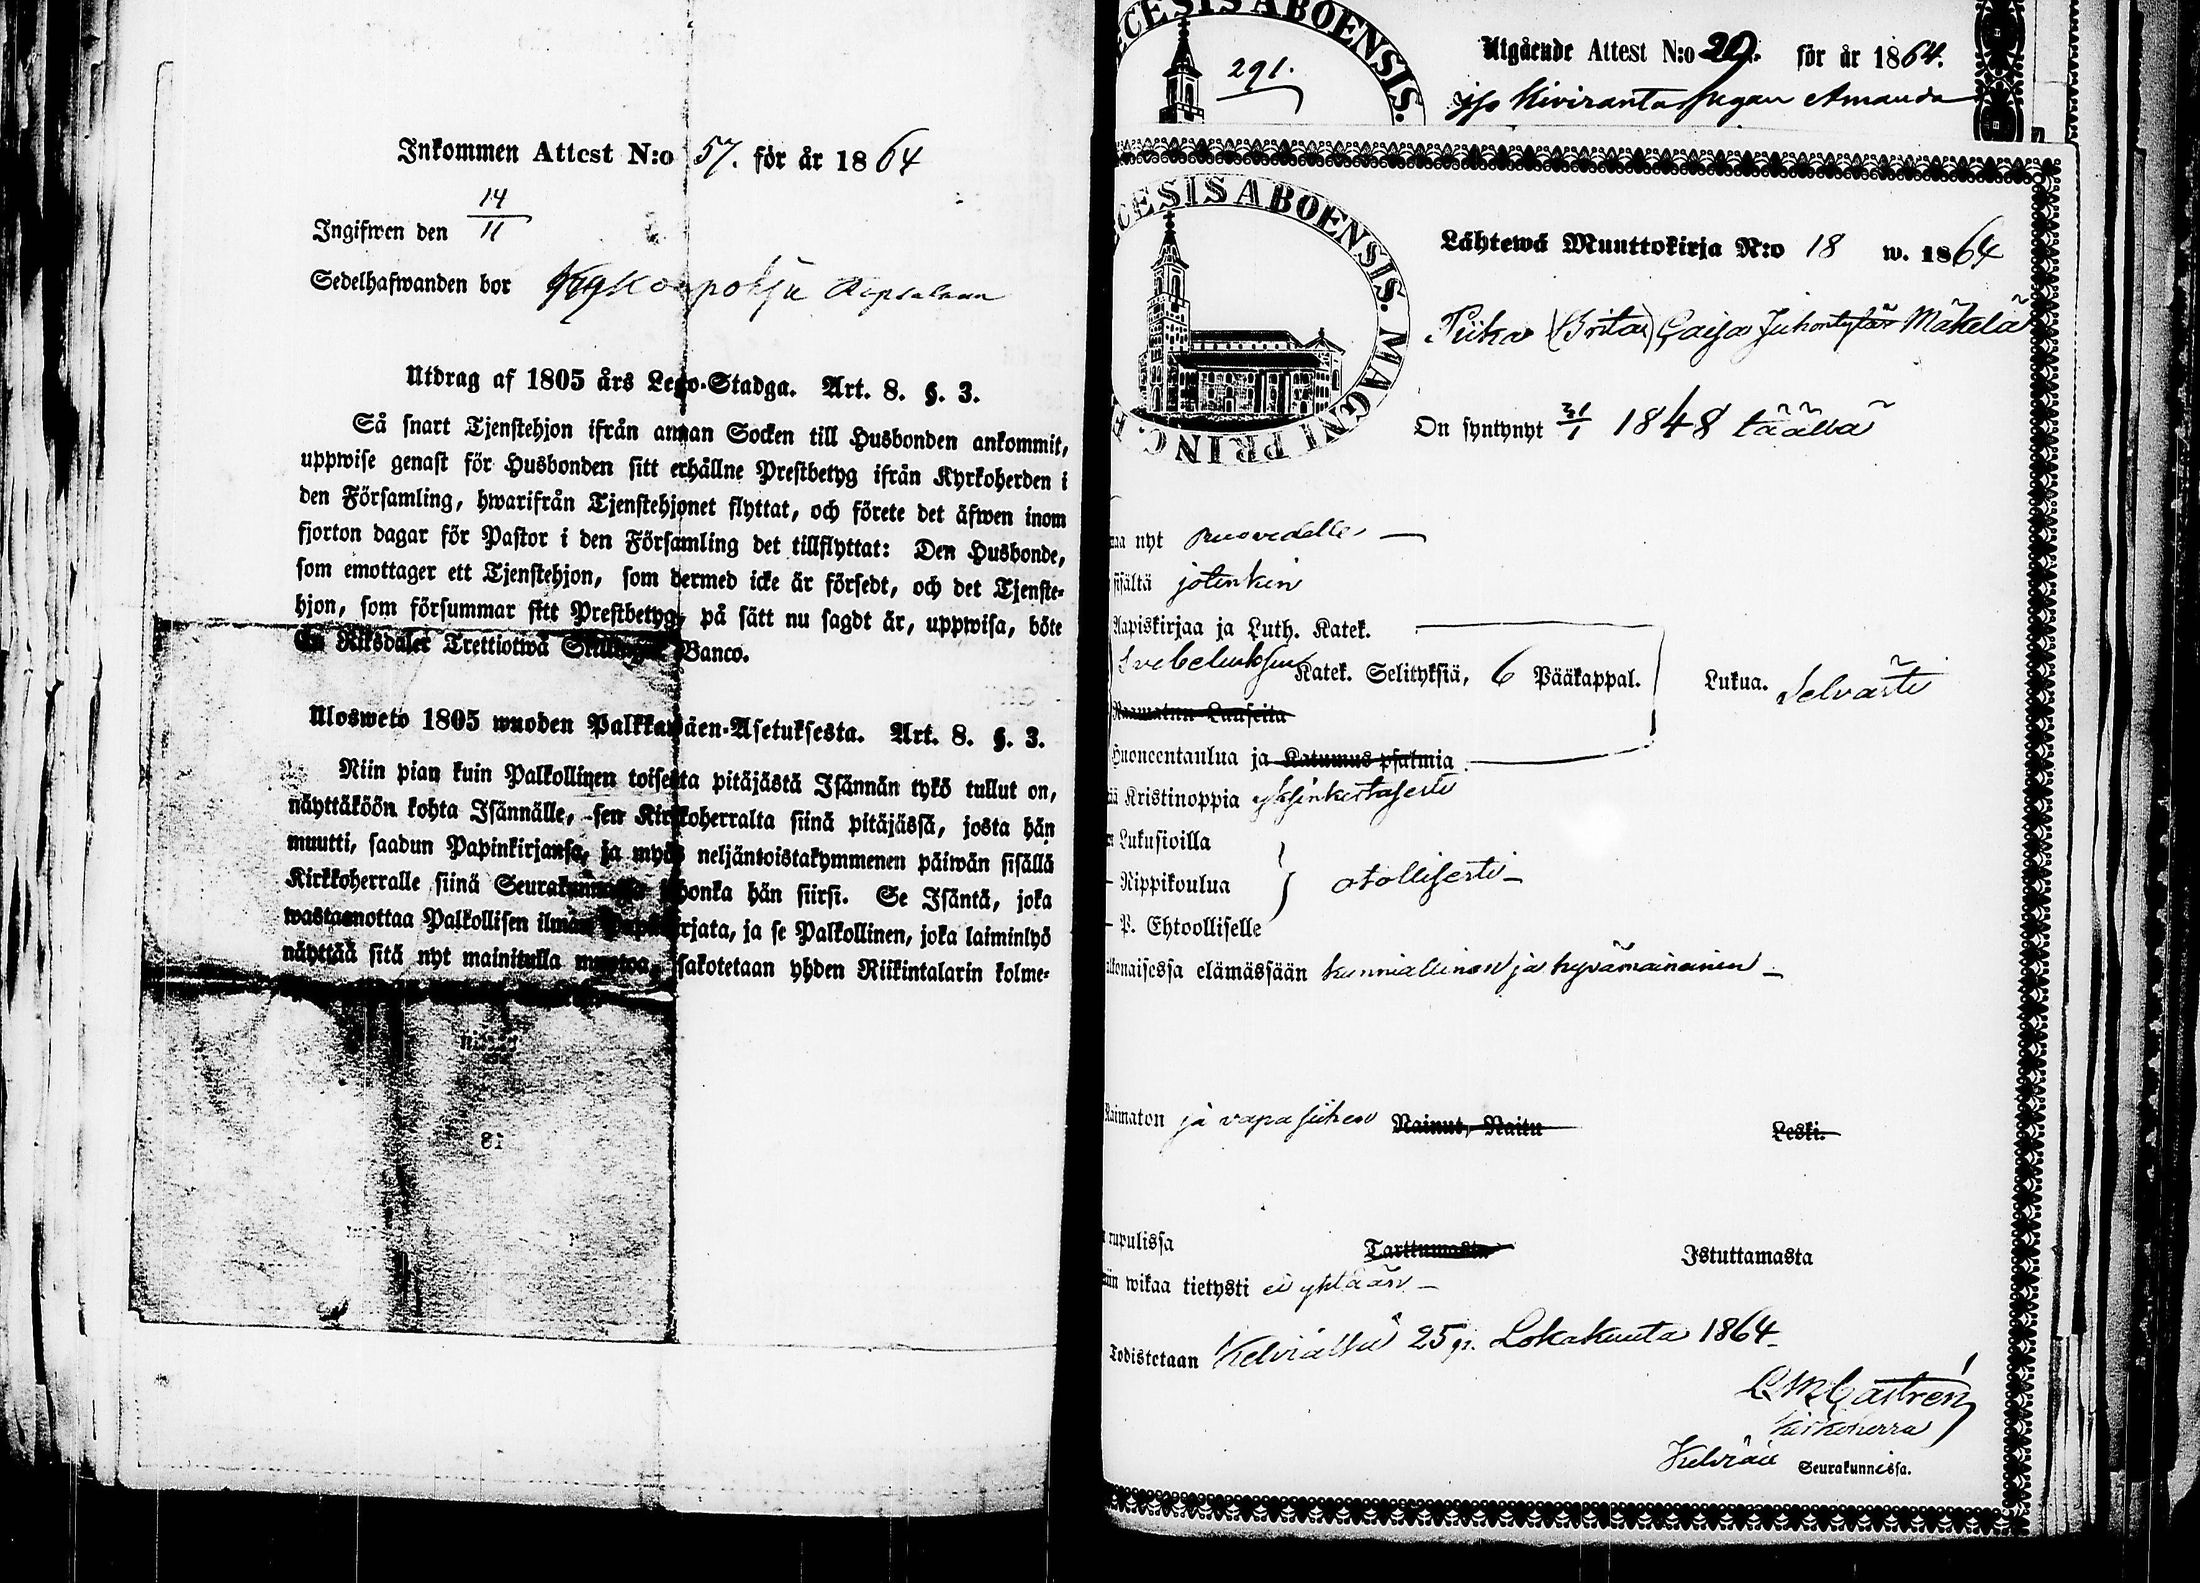 Inkommen Attest N:o 57. för år 1864
Ingifwen den 14/11
Sedelhafwanden bor
Utdrag af 1805 års Lego-Stadga. Art. 8. §. 3.
Så snart Tjenstehjon ifrån annan Socken till Husbonden ankommit,
uppwise genast för Husbonden sitt erhållne Prestbetyg ifrån Kyrkoherden i
den Församling, hwarifrån Tjenstehjonet flyttat, och förete det äfwen inom
fjorton dagar för Pastor i den Församling det tillflyttat: Den Husbonde,
som emottager ett Tjenstehjon, som dermed icke är försedt, och det Tjenste-
hjon, som försummar sitt Prestbetyg, på sätt nu sagdt är, uppwisa, böte
En Riksdaler Trettiotwå Skillingar Banco.
Ulosweto 1805 wuoden Palkkawäen-Asetuksesta. Art. 8. §. 3.
Niin pian kuin Palkollinen toisesta pitäjästä Isännän tykö tullut on,
näyttäköön kohta Isännälle, sen Kirkkoherralta siinä pitäjässä, josta hän
muutti, saadun Papinkirjansa, ja myös neljäntoistakymmenen päiwän sisällä
Kirkkoherralle siinä Seurakunnassa johonka hän siirsi. Se Isäntä, joka
wastaanottaa Palkollisen ilman Papinkirjata, ja se Palkollinen, joka laiminlyö
näyttää sitä nyt mainitulla muotoa, sakotetaan yhden Riikintalarin kolme-
81
ECESIS ABOENSIS.
291.
Utgående Attest N:o 20. för år 1864.
Kiviranta Amanda
CESIS ABOENSIS. MAGNI PRINC. F
Lähtewä Muuttokirja N:o 18 w. 1864
Piika (Brita) Caisa Juhontytär Mäkelä
On syntynyt 31/1 1848 täällä
aa nyt Ruovedelle. —
sisältä jotenkin
Aapiskirjaa ja Luth. Katek.
Svebeliuksen Katek. Selityksiä, 6 Pääkappal. Lukua. Selvästi
Raamatun Lauseita
Huoneentaulua ja Katumus psalmia
ää Kristinoppia yksinkertasesti
Lukusioilla
- Rippikoulua otollisesti —
- P. Ehtoolliselle
lkonaisessa elämässään kunniallinen ja hyvämaineinen —
Naimaton ja vapa siihen Nainut, Naitu Leski.
rupulissa Tarttumasta Istuttamasta
iin wikaa tietysti ei yhtään —
Todistetaan Kelviällä 25 p. Lokakuuta 1864
Castrén
Kirkoherra
Kelviän Seurakunnissa.